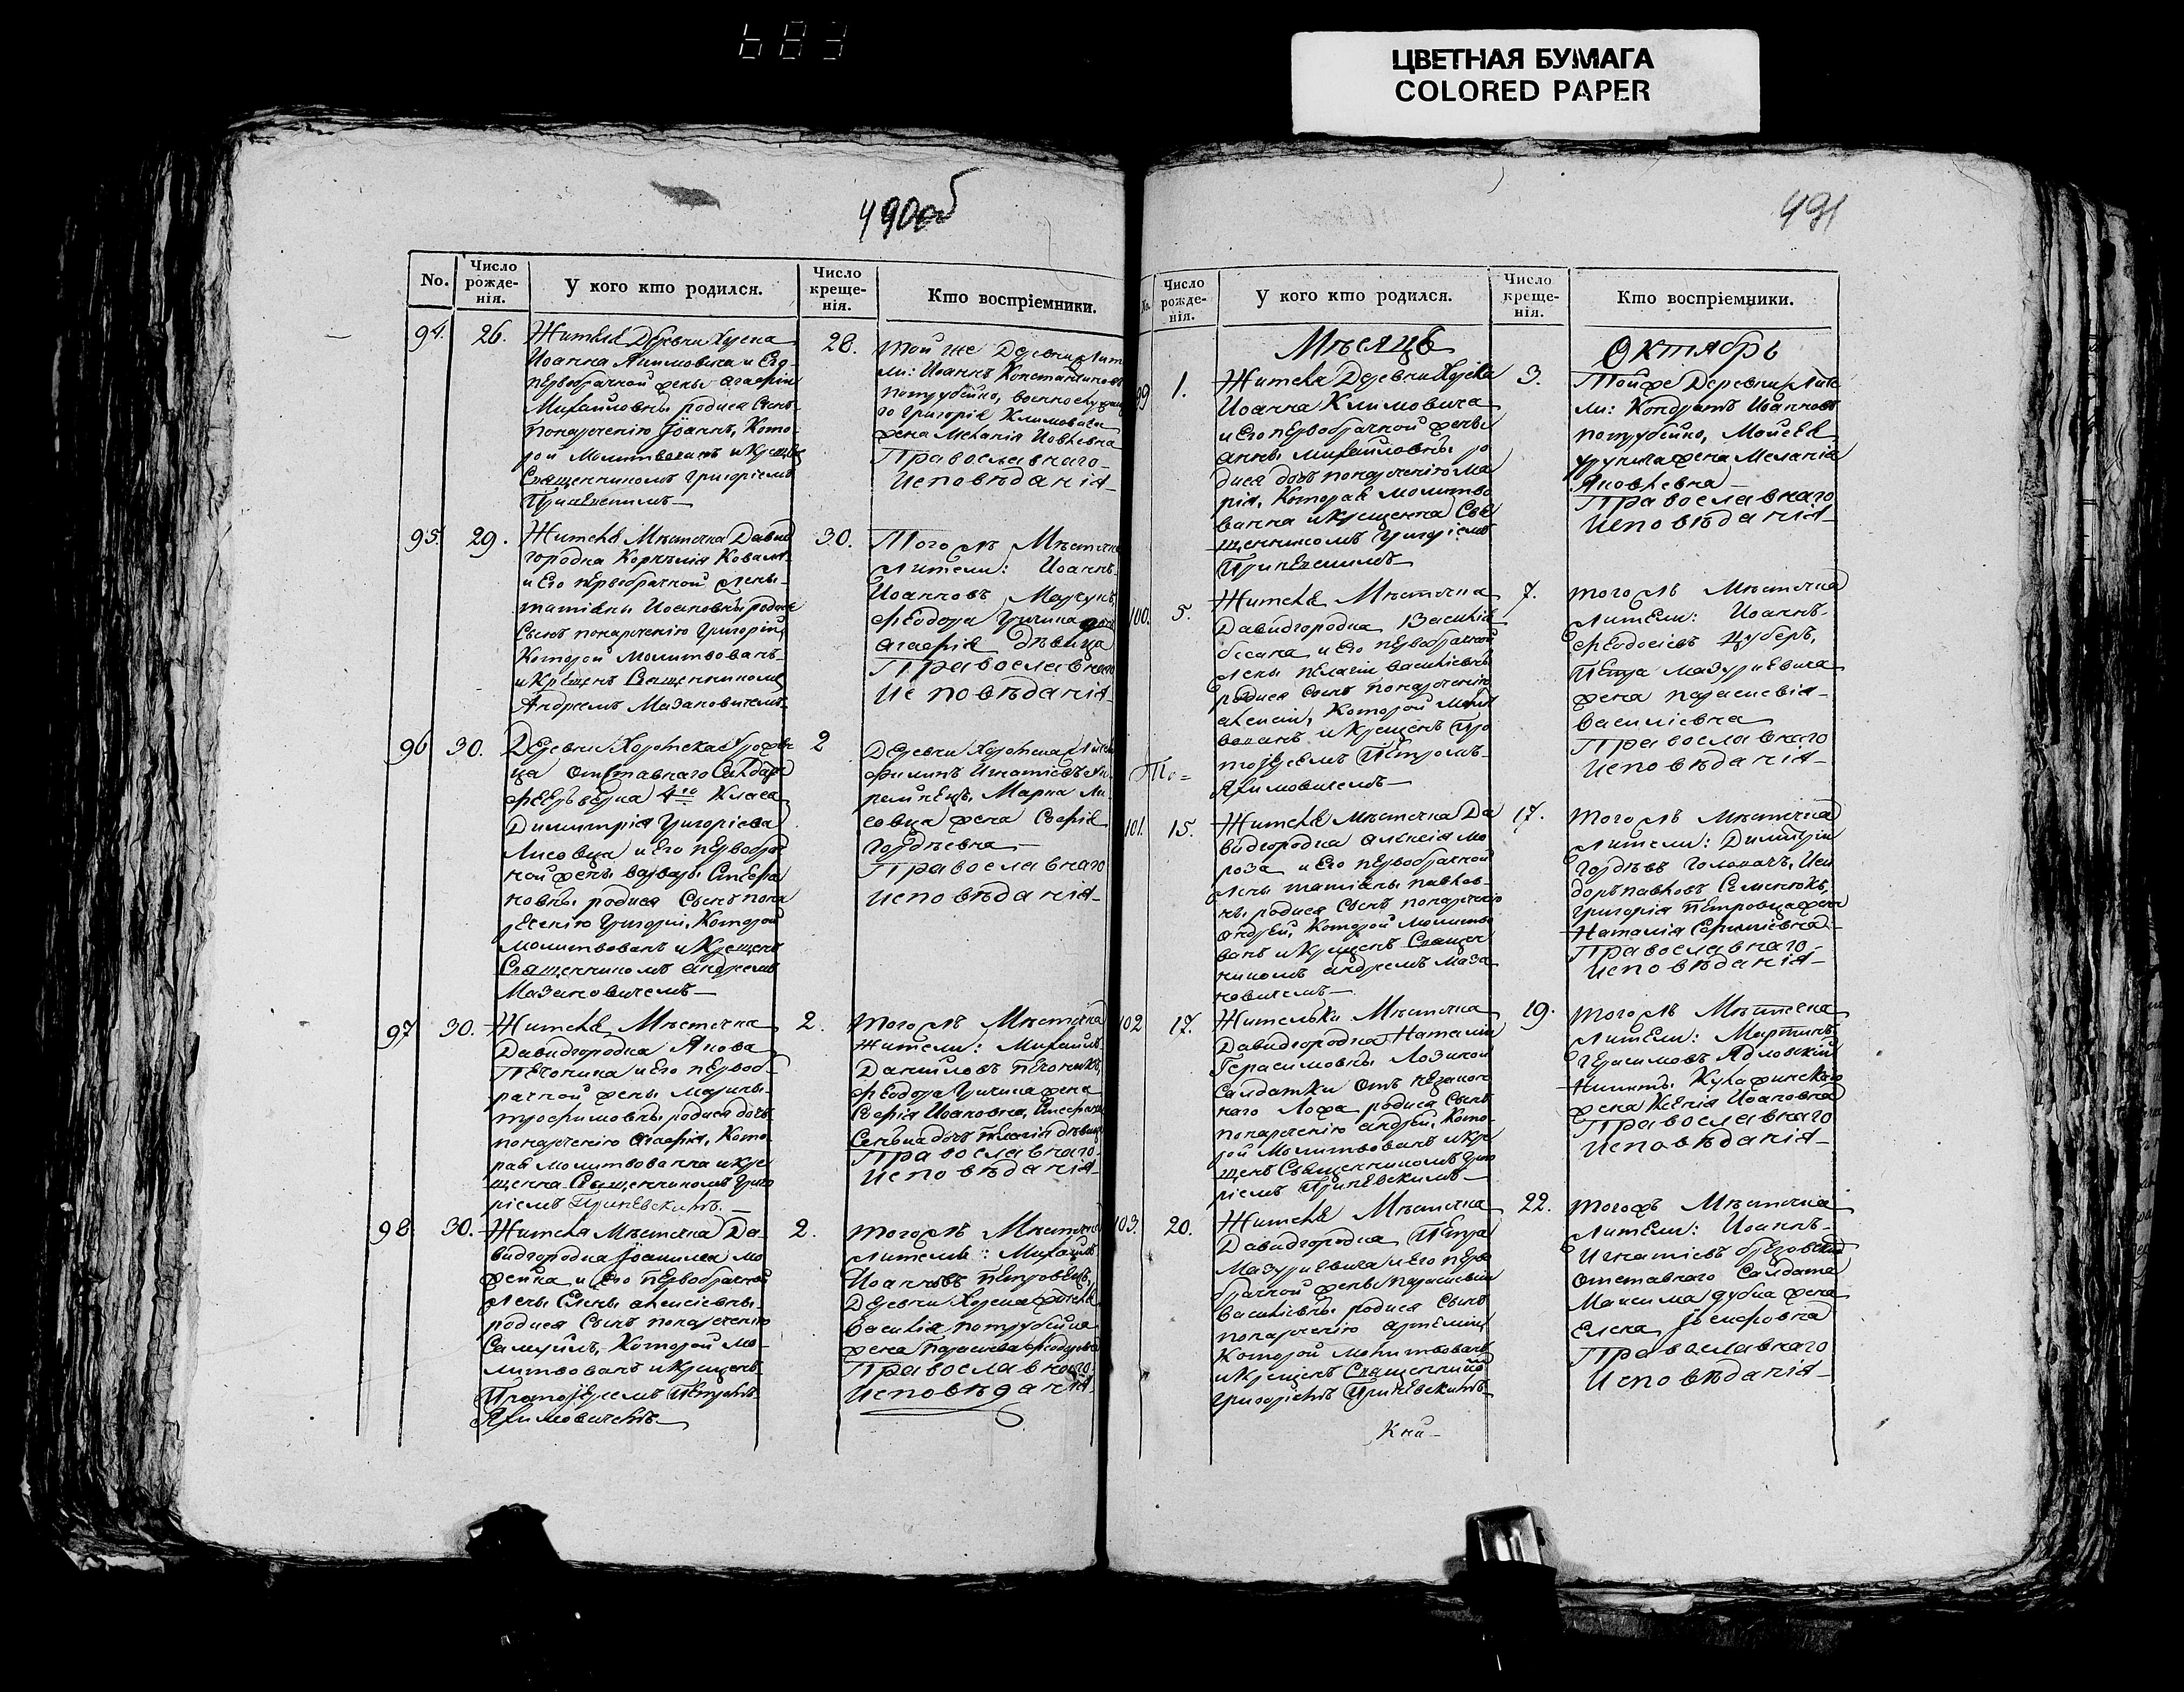 683
ЦВЕТНАЯ БУМАГА
COLORED PAPER
490об
No.
Число рожде-нія.
У кого кто родился.
Число креще-нія.
Кто воспріемники.
94.
26.
Жителя Деревни Хорска
Иоанна Климовича и Его
первобрачной жены Агафіи
Михайловны родися Сынъ
понаречению Іоаннъ, Кото-
рой Молитвованъ и Крещенъ
Священникомъ Григоріемъ
28.
той же Деревни Жит
ли: Иоаннъ Константиновъ
потрубейко, военнослужащ
го Григорія Климовича
жена Меланія Иовлевна
Православнаго
Исповѣданія
95.
29.
Жителя Мѣстечка Давид
городка Корнѣлія Коваля
и Его первобрачной жены
татіаны Иоановны родися
Сынъ понаречению Григорій,
Которой Молитвованъ
и Крещенъ Священникомъ
Андреемъ Мазановичемъ
30.
Того жъ Мѣстечка
жители: Иоаннъ
Иоанновъ
феодора Гричина дочь
Агафія дѣвица
Православнаго
Исповѣданія
96
30.
Деревни Хоромска
отставнаго
4го Класа
Димитрія Григоріева
Лисовца и Его первобрач
ной жены варвары Стефа
новны родися Сынъ пона
речению Григорій, Которой
молитвованъ и Крещенъ
Священникомъ андреемъ
Мазановичемъ
2
Деревни Хоромска Жители
филипъ Игнатіевъ
Марка Ли-
совца жена Софія
Гордѣевна
Православнаго
Исповѣданія
97
30.
Жителя Мѣстечка
Давидгородка Якова
Печоника и Его первоб-
рачной жены Марины
трофимовны родися дочь
понаречению Агафія, Кото
рая молитвованна и кре
щенна Священникомъ Григо
ріемъ Приневскимъ.
2.
того жъ Мѣстечка
Жители: Михаилъ
Даниловъ печоникъ,
феодора Гричина жена
Софія Иоановна, Стефана
Сенона дочь Пелагія дѣвица
Православнаго
Исповѣданія
98.
30.
Жителя Мѣстечка Да-
видгородка Іоакима мо
жейка и Его первобрачной
жены Елены алексіевны
родися Сынъ понаречению
Самуилъ, Которой мо-
литвованъ и крещенъ
Протоіереемъ Петромъ
Якимовичемъ
2.
того жъ Мѣстечка
жители: Михаилъ
Иоанновъ Петровецъ,
Деревни Хорска жителя
Василія потрубейка
жена Параскева феодоровна
Православнаго
Исповѣданія
491
No.
Число рожде-нія.
У кого кто родился.
Число креще-нія.
Кто воспріемники.
Мѣсяцъ
Октябрь
99
1.
Жителя Деревни Хорска
Иоанна Климовича
и Его первобрачной жены
анны Михайловны ро
дися дочь понаречению Ма
рія, Которая молитво
ванна и крещенна Свя
щенникомъ Григоріемъ
3.
Той же Деревни Жите
ли: Кондратъ Иоанновъ
потрубейко, Мойсея
жена Меланія
Яковлевна
Православнаго
Исповѣданія
100.
5.
Жителя Мѣстечка
Давидгородка Василія
и Его первобрачной
жены пелагіи василіевны
родися Сынъ понаречению
алексій, Которой Молит
вованъ и Крещенъ Про
тоіереемъ Петромъ
Якимовичемъ
7.
того жъ Мѣстечка
жители: Иоаннъ
феодосіевъ Цуберъ,
Петра Мазуркевича
жена параскевія
василіевна
Православнаго
Исповѣданія
101.
15.
Жителя мѣстечка Да
видгородка алексія мо
роза и Его первобрачной
жены татіаны павлов-
ны родися Сынъ понаречению
андрей, Которой молитво
ванъ и крещенъ Священ
никомъ андреемъ Маза
новичемъ
17.
того жъ Мѣстечка
жители: Димитрій
Гордѣевъ Исы
доръ павловъ Семенюкъ,
Григорія Петровца жена
Наталія
Православнаго
Исповѣданія
102
17.
Жительки Мѣстечка
Давидгородка Наталіи
Герасимовны Лозичой
Салдатки отъ незакон
наго Ложа родися Сынъ
понаречению андрей, Кото-
рой Молитвованъ и кре
щенъ Священникомъ Григо
ріемъ Приневскимъ
19.
того жъ Мѣстечка
жители: Мартинъ
Герасимовъ Ядловскій
Никиты Кулажинскаго
жена Ксенія Иоановна
Православнаго
Исповѣданія
103.
20.
Жителя Мѣстечка
Давидгородка Петра
Мазуркевича и Его перво
брачной жены параскевіи
василіевны родися Сынъ
понаречению артемій
Которой молитвованъ
и крещенъ Священником
Григоріемъ Приневскимъ
22.
того жъ Мѣстечка
жители: Иоаннъ
Игнатіевъ
отставнаго Салдата
Максима дубна жена
Елена Іосифовна
Православнаго
Исповѣданія
Кни-